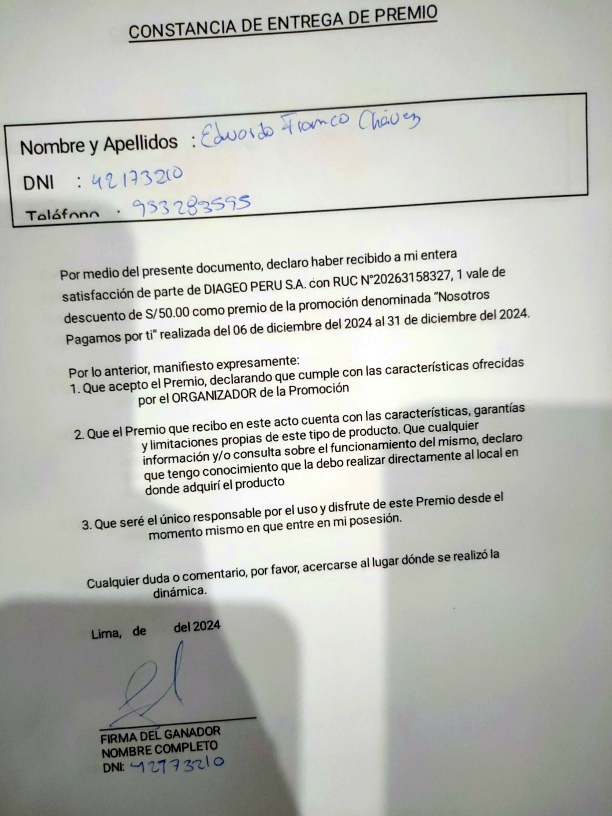 CONSTANCIA DE ENTREGA DE PREMIO
Nombre y Apellidos : Eduardo Franco Chávez
DNI : 42173210
Teléfono : 953283595
Por medio del presente documento, declaro haber recibido a mi entera
satisfacción de parte de DIAGEO PERU S.A. con RUC N°20263158327, 1 vale de
descuento de S/50.00 como premio de la promoción denominada "Nosotros
Pagamos por ti" realizada del 06 de diciembre del 2024 al 31 de diciembre del 2024.
Por lo anterior, manifiesto expresamente:
1. Que acepto el Premio, declarando que cumple con las características ofrecidas
por el ORGANIZADOR de la Promoción
2. Que el Premio que recibo en este acto cuenta con las características, garantías
y limitaciones propias de este tipo de producto. Que cualquier
información y/o consulta sobre el funcionamiento del mismo, declaro
que tengo conocimiento que la debo realizar directamente al local en
donde adquirí el producto
3. Que seré el único responsable por el uso y disfrute de este Premio desde el
momento mismo en que entre en mi posesión.
Cualquier duda o comentario, por favor, acercarse al lugar dónde se realizó la
dinámica.
Lima, de del 2024
FIRMA DEL GANADOR
NOMBRE COMPLETO
DNI: 42173210